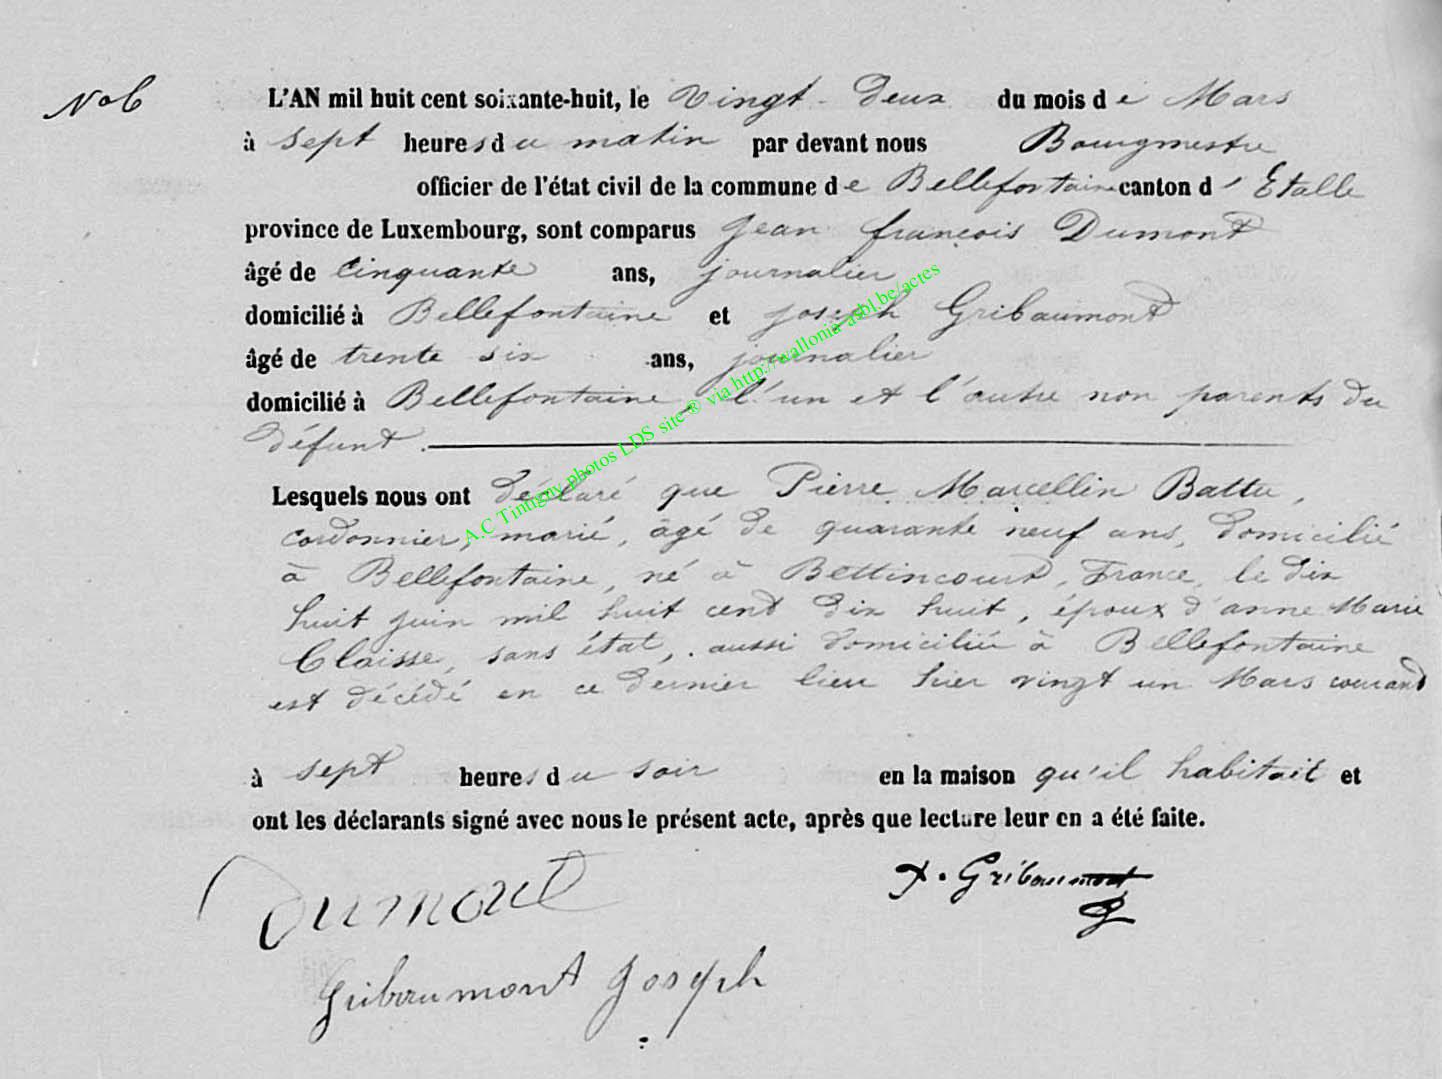 No 6
L'AN mil huit cent soixante-huit, le Vingt-Deux du mois de Mars
à sept heures du matin par devant nous Bourgmestre
officier de l'état civil de la commune de Bellefontaine canton d'Etalle
province de Luxembourg, sont comparus Jean françois Dumont
âgé de Cinquante ans, journalier
domicilié à Bellefontaine et joseph Gribaumont
âgé de trente six ans, journalier
domicilié à Bellefontaine, l'un et l'autre non parents du
défunt.
Lesquels nous ont déclaré que Pierre Marcellin Battu,
cordonnier, marié, âgé de quarante neuf ans, domicilié
à Bellefontaine, né à Bettincourt, France, le dix
huit juin mil huit cent dix huit, époux d'anne Marie
Claisse, sans état, aussi domiciliée à Bellefontaine
est décédé en ce dernier lieu hier vingt un Mars courant
à sept heures du soir en la maison qu'il habitait et
ont les déclarants signé avec nous le présent acte, après que lecture leur en a été faite.
Dumont
Gribaumont
Gribaumont Joseph
A.C Tintigny photos LDS site® via http://wallonia-asbl.be/actes